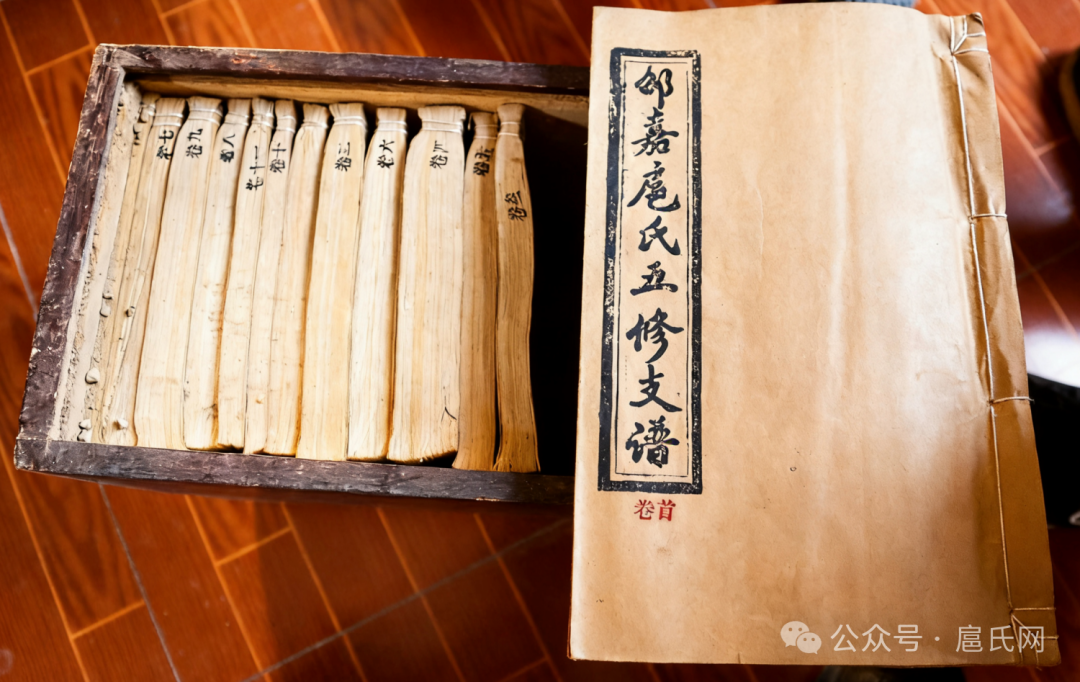 邵嘉扈氏五修支谱
卷首
卷七
卷九
卷八
卷十一
卷十
卷三
卷六
卷四
卷五
公众号 · 扈氏网